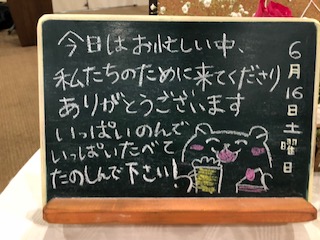 今日はお忙しい中、
私たちのために来てくださり
ありがとうございます
いっぱいのんで
いっぱいたべて
たのしんで下さい!
6月16日土曜日